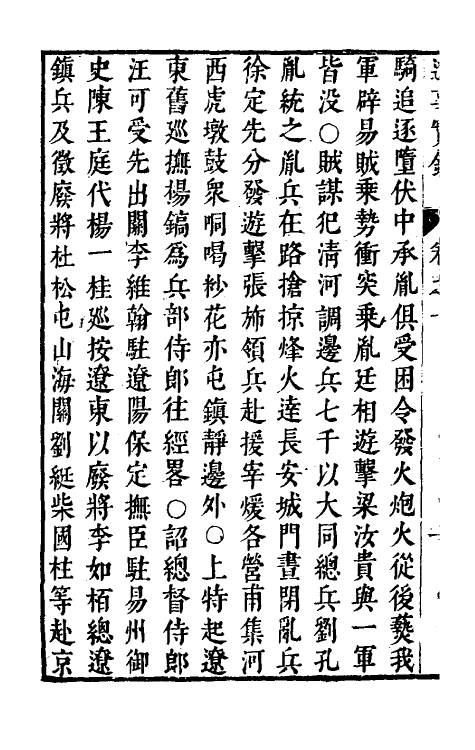 騎追逐墮伏中承胤俱受困令發火炮火從後爇我
軍辟易賊乘勢衝突乘胤廷相遊擊梁汝貴與一軍
皆没○賊謀犯清河調邊兵七千以大同總兵劉孔
胤統之胤兵在路搶掠烽火達長安城門晝閉亂兵
徐定先分發遊擊張斾領兵赴援宰煖各營甫集河
西虎墩鼓衆哃喝抄花亦屯鎮靜邊外○上特起遼
東舊巡撫楊鎬爲兵部侍郎往經畧○詔總督侍郎
汪可受先出關李維翰駐遼陽保定撫臣駐易州御
史陳王庭代楊一桂巡按遼東以廢將李如栢總遼
鎮兵及徵廢將杜松屯山海關劉綎柴國柱等赴京